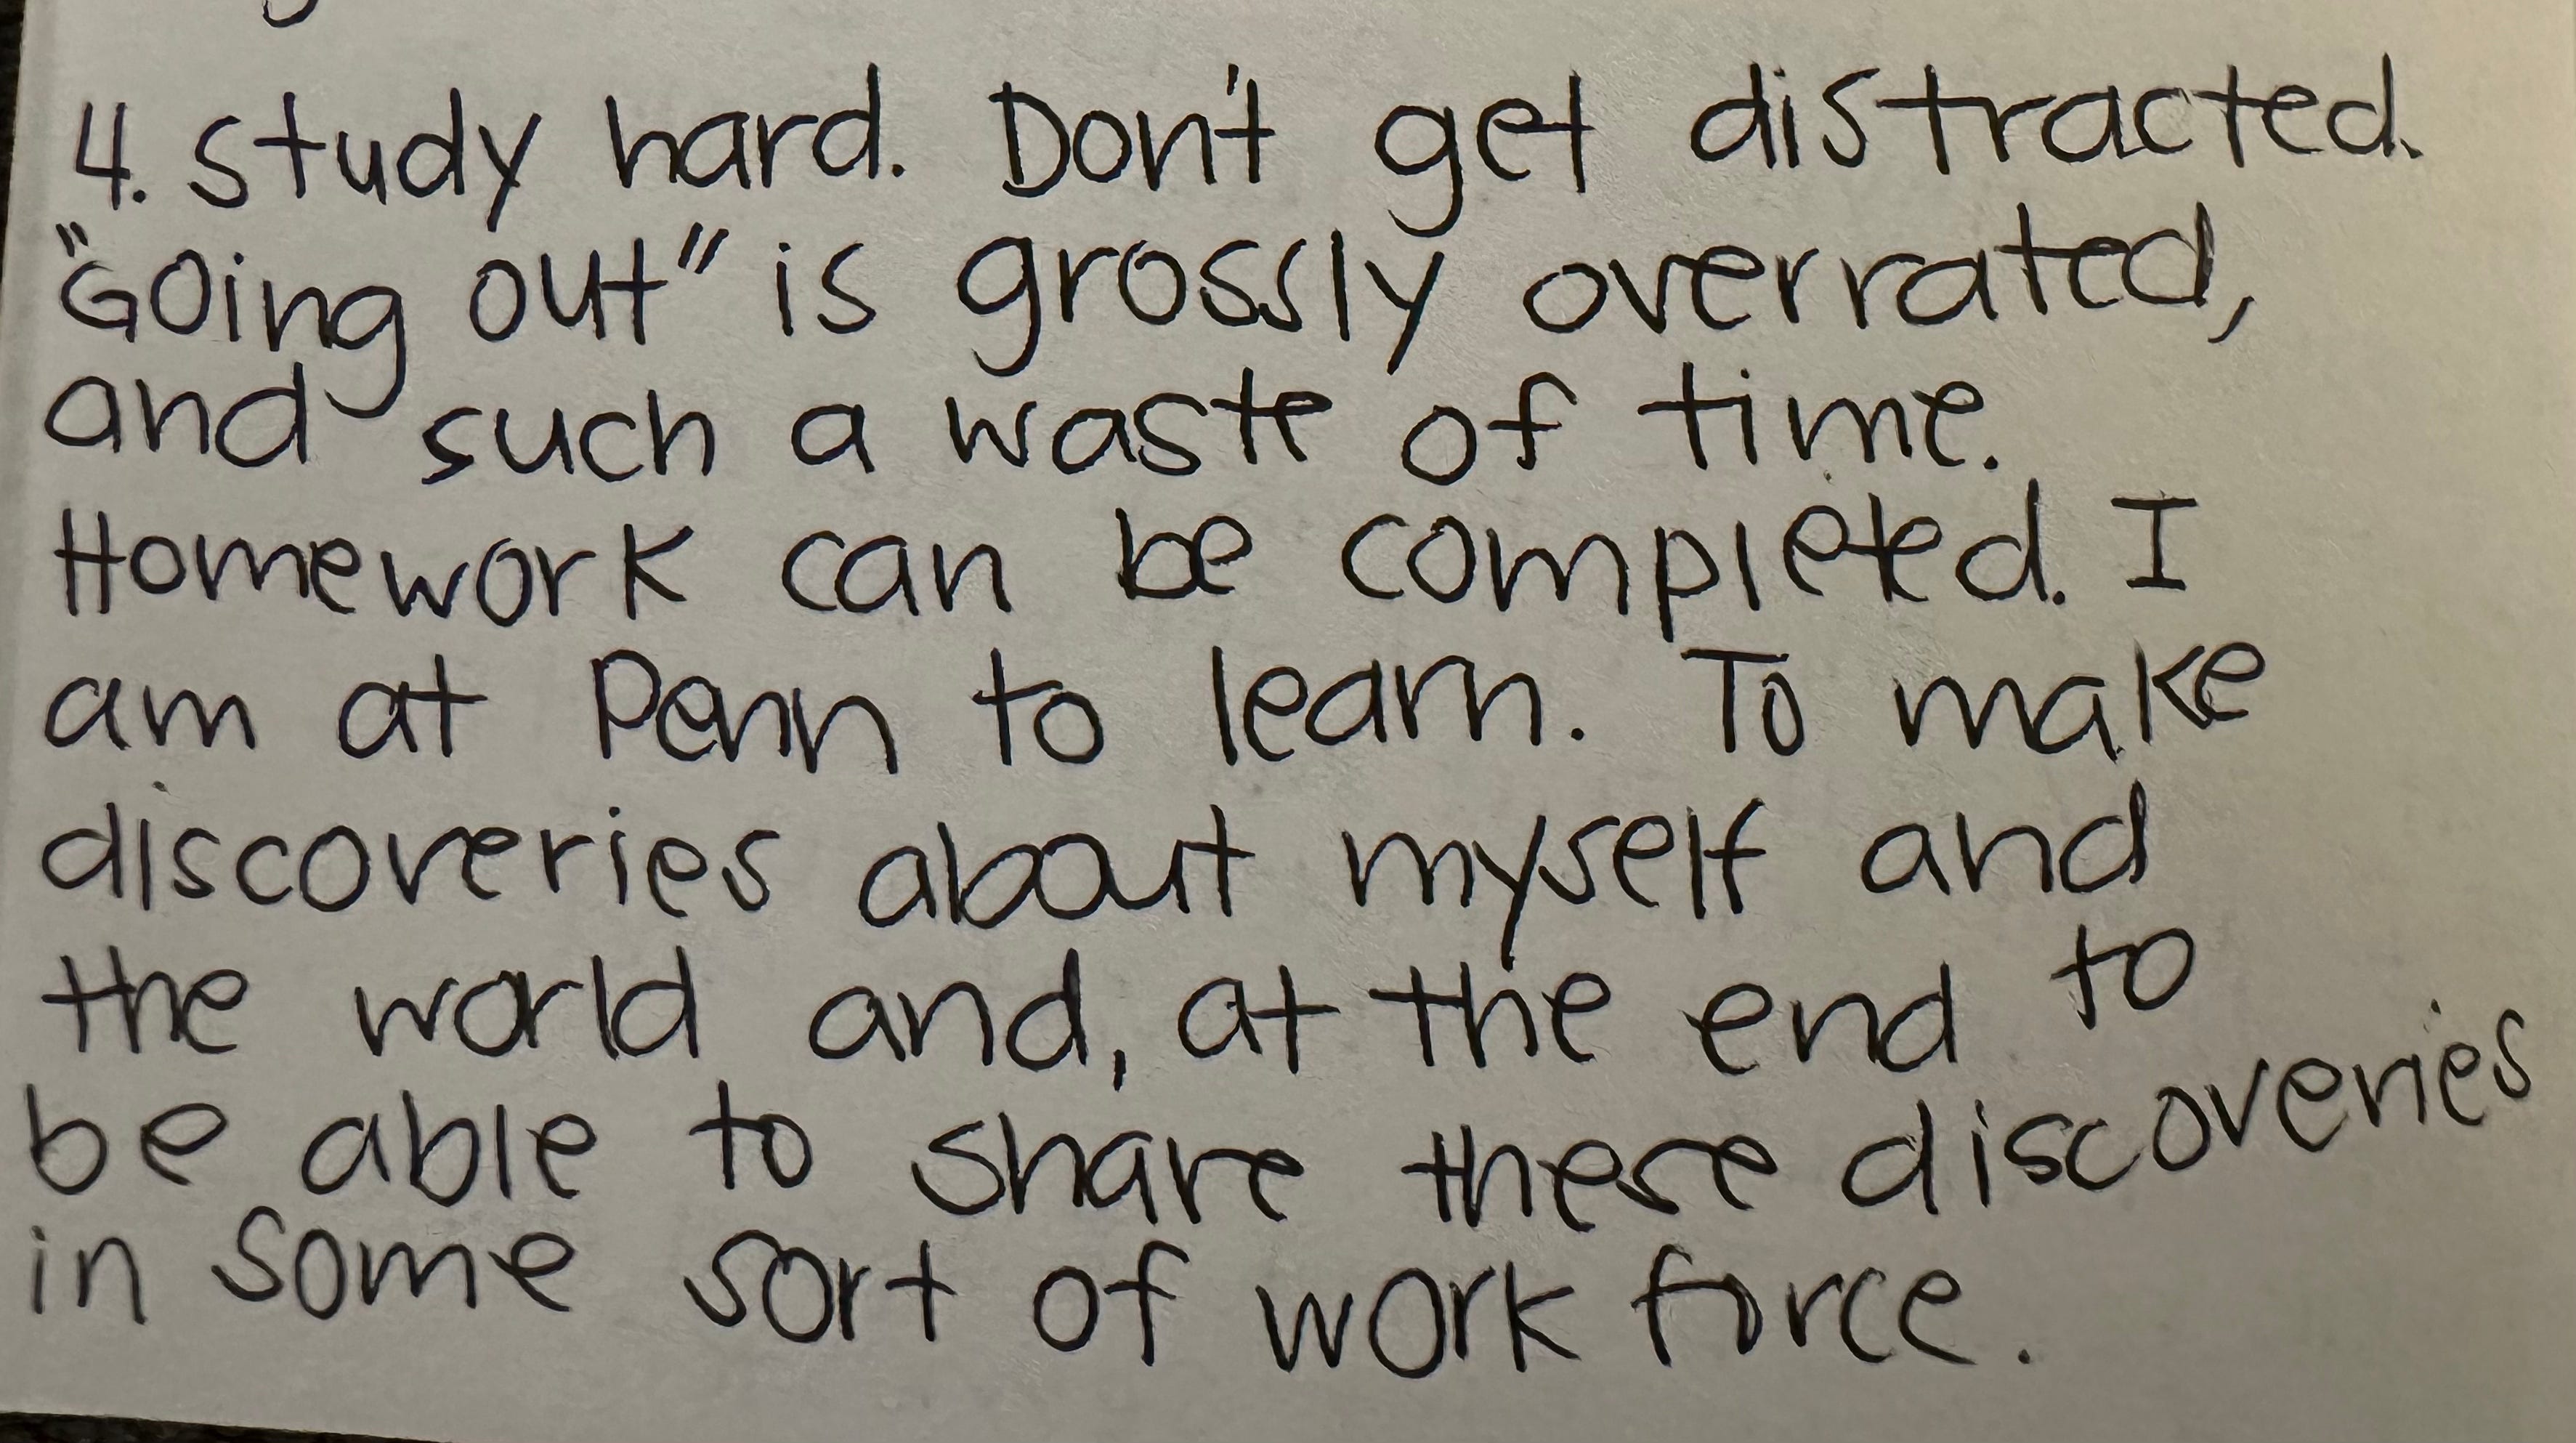 4. Study hard. Don't get distracted.
"Going out" is grossly overrated,
and such a waste of time.
Homework can be completed. I
am at Penn to learn. To make
discoveries about myself and
the world and, at the end to
be able to share these discoveries
in some sort of work force.